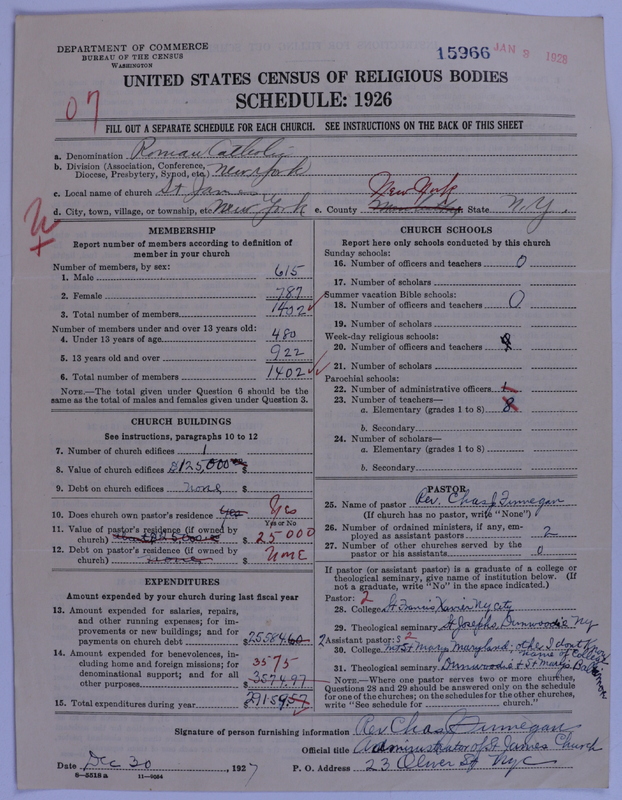 DEPARTMENT OF COMMERCE
BUREAU OF THE CENSUS
WASHINGTON
15966 JAN 3 1928
UNITED STATES CENSUS OF RELIGIOUS BODIES
SCHEDULE: 1926
07
FILL OUT A SEPARATE SCHEDULE FOR EACH CHURCH. SEE INSTRUCTIONS ON THE BACK OF THIS SHEET
a. Denomination Roman Catholic
b. Division (Association, Conference, Diocese, Presbytery, Synod, etc.) New York
c. Local name of church St James
d. City, town, village, or township, etc. New York e. County New York State N.Y.
MEMBERSHIP
Report number of members according to definition of
member in your church
Number of members, by sex:
1. Male 615
2. Female 787
3. Total number of members 1402
Number of members under and over 13 years old:
4. Under 13 years of age 480
5. 13 years old and over 922
6. Total number of members 1402
NOTE.—The total given under Question 6 should be the
same as the total of males and females given under Question 3.
CHURCH BUILDINGS
See instructions, paragraphs 10 to 12
7. Number of church edifices 1
8. Value of church edifices $125,000 $
9. Debt on church edifices none $
10. Does church own pastor's residence Yes Yes
Yes or No
11. Value of pastor's residence (if owned by
church) $ 25000
12. Debt on pastor's residence (if owned by
church) none $ none
EXPENDITURES
Amount expended by your church during last fiscal year
13. Amount expended for salaries, repairs,
and other running expenses; for im-
provements or new buildings; and for
payments on church debt $25584.60
14. Amount expended for benevolences, in-
cluding home and foreign missions; for
denominational support; and for all
other purposes 3575 $3574.97
15. Total expenditures during year $29159.57
CHURCH SCHOOLS
Report here only schools conducted by this church
Sunday schools:
16. Number of officers and teachers 0
17. Number of scholars
Summer vacation Bible schools:
18. Number of officers and teachers 0
19. Number of scholars
Week-day religious schools:
20. Number of officers and teachers
21. Number of scholars
Parochial schools:
22. Number of administrative officers 1
23. Number of teachers—
a. Elementary (grades 1 to 8) 8
b. Secondary
24. Number of scholars—
a. Elementary (grades 1 to 8)
b. Secondary
PASTOR
25. Name of pastor Rev. Chas J Finnegan
(If church has no pastor, write "None")
26. Number of ordained ministers, if any, em-
ployed as assistant pastors 2
27. Number of other churches served by the
pastor or his assistants 0
If pastor (or assistant pastor) is a graduate of a college or
theological seminary, give name of institution below. (If
not a graduate, write "No" in the space indicated.)
Pastor: 2
28. College St Francis Xavier Ny city
29. Theological seminary St Josephs, Dunwoodie Ny
2 Assistant pastor: 2
30. College Mt St Marys Maryland; other I dont know
name of College
31. Theological seminary Dunwoodie & St Marys Baltimore
NOTE.—Where one pastor serves two or more churches,
Questions 28 and 29 should be answered only on the schedule
for one of the churches; on the schedules for the other churches,
write "See schedule for church."
Signature of person furnishing information Rev Chas J Finnegan
Official title Administrator of St James Church
Date Dec 30, 1927 P. O. Address 23 Oliver St. Nyc
6—5518 a 11—9064